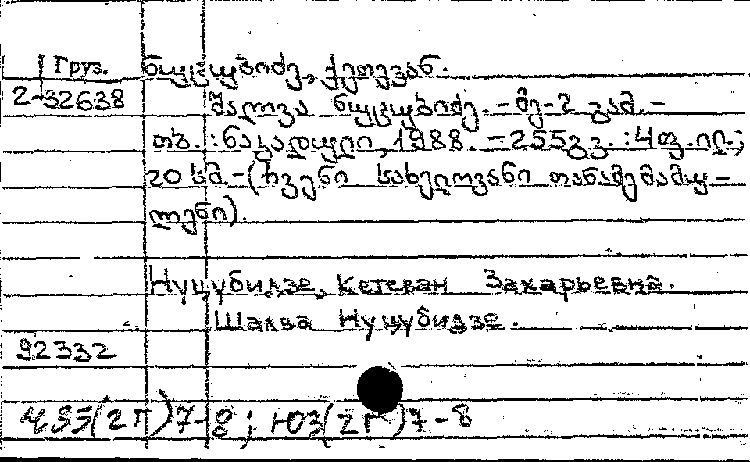 Груз. ნუცუბიძე, ქეთევან.
2-32638 შალვა ნუცუბიძე. - მე-2 გამ. -
თბ. : ნაკადული, 1988. - 255გვ. : 4ფ. ილ.;
20 სმ. - (ჩვენი სახელოვანი თანამემამუ-
ლენი).
Нуцубидзе, Кетеван Захарьевна.
Шалва Нуцубидзе.
92332
Ч35(2Г)7-8; Ю3(2Г)7-8